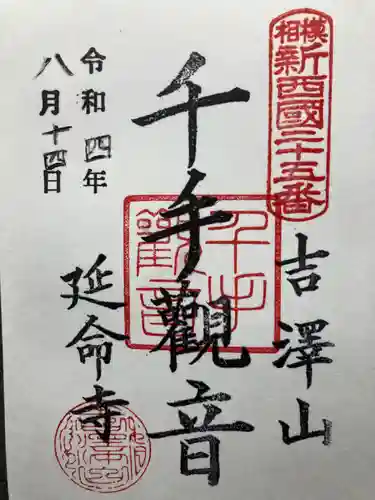 相模
新西國三十五番
吉澤山
千手觀音
千手觀音
延命寺
令和四年
八月十四日